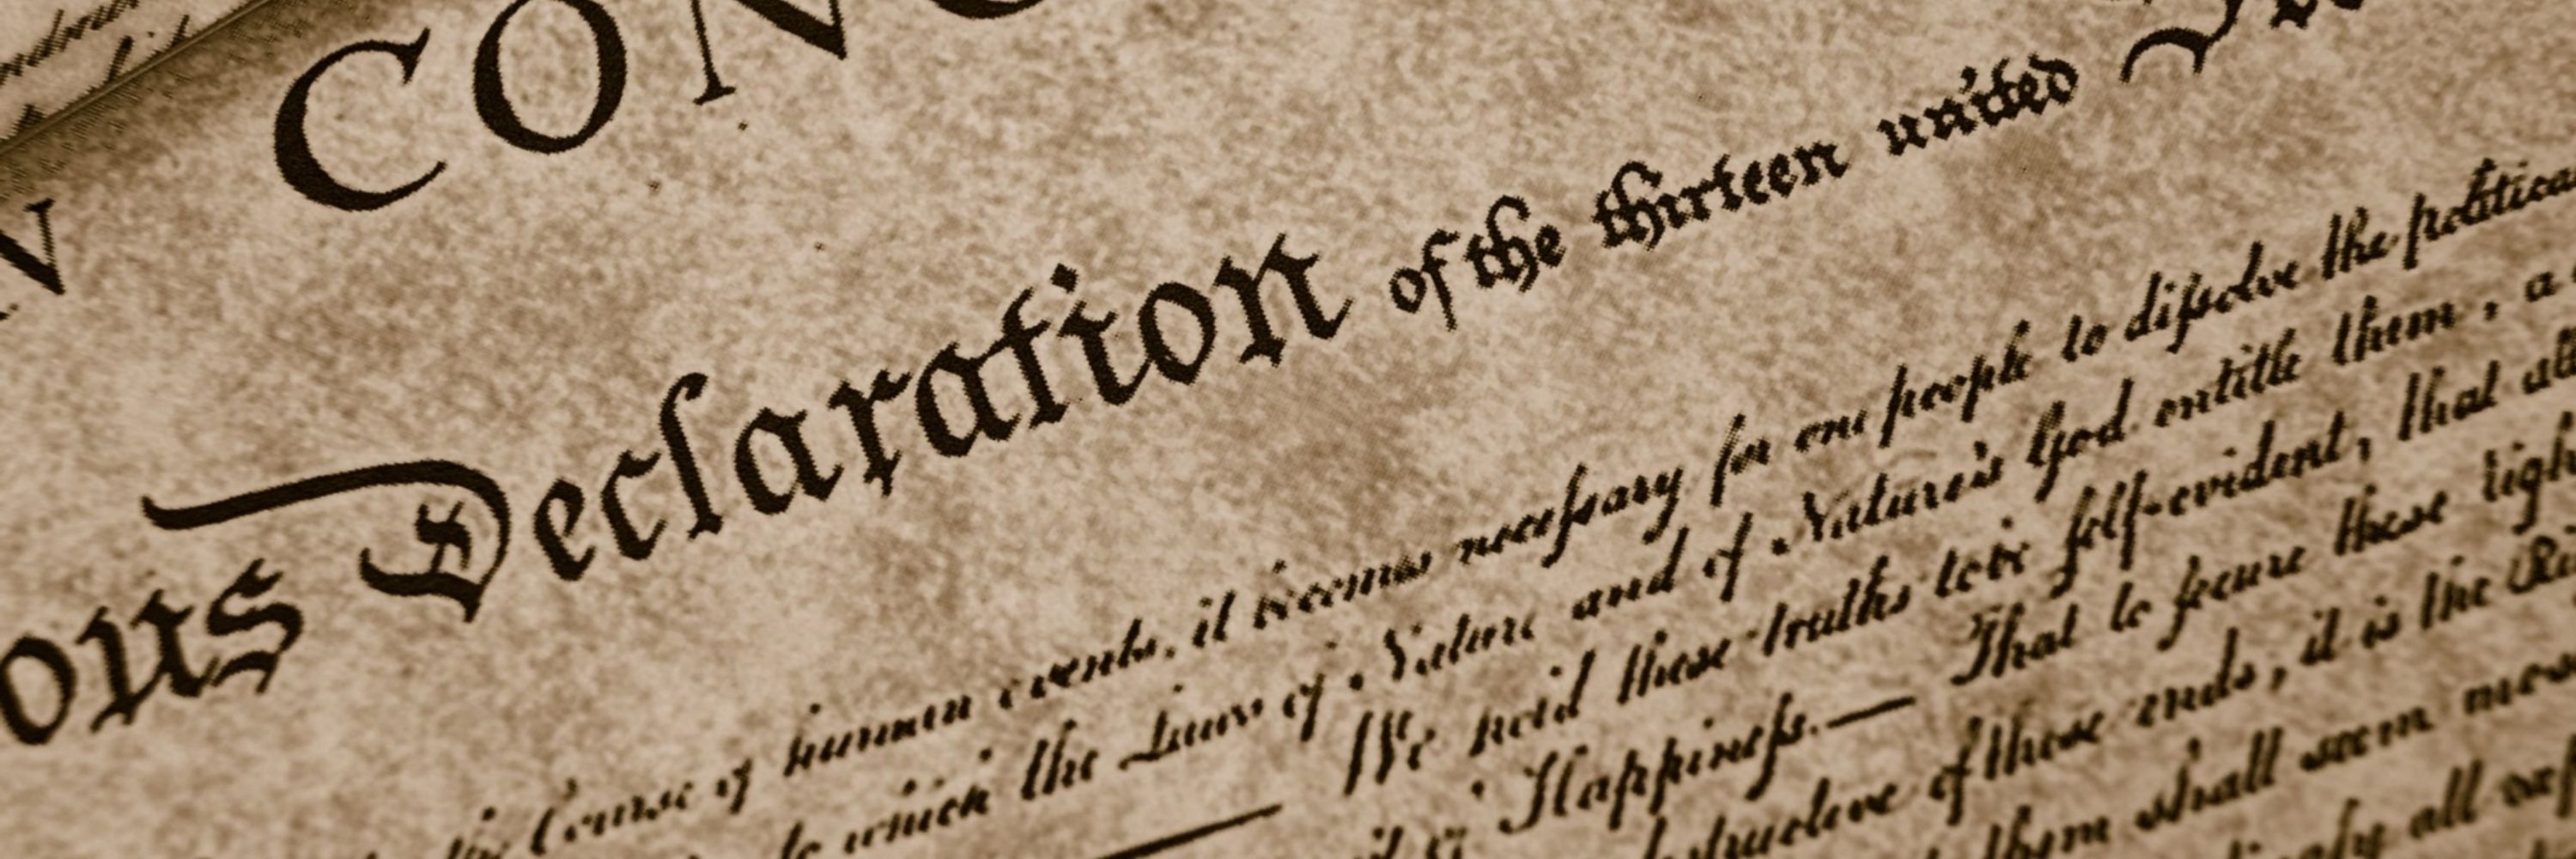 N CONG
ous Declaration of the thirteen united
the Course of human events, it becomes necessary for one people to dissolve the political
to which the Laws of Nature and of Nature's God entitle them, a
We hold these truths to be self-evident, that all
Happiness.— That to secure these righ
structive of these ends, it is the Ri
them shall seem mos
all exp